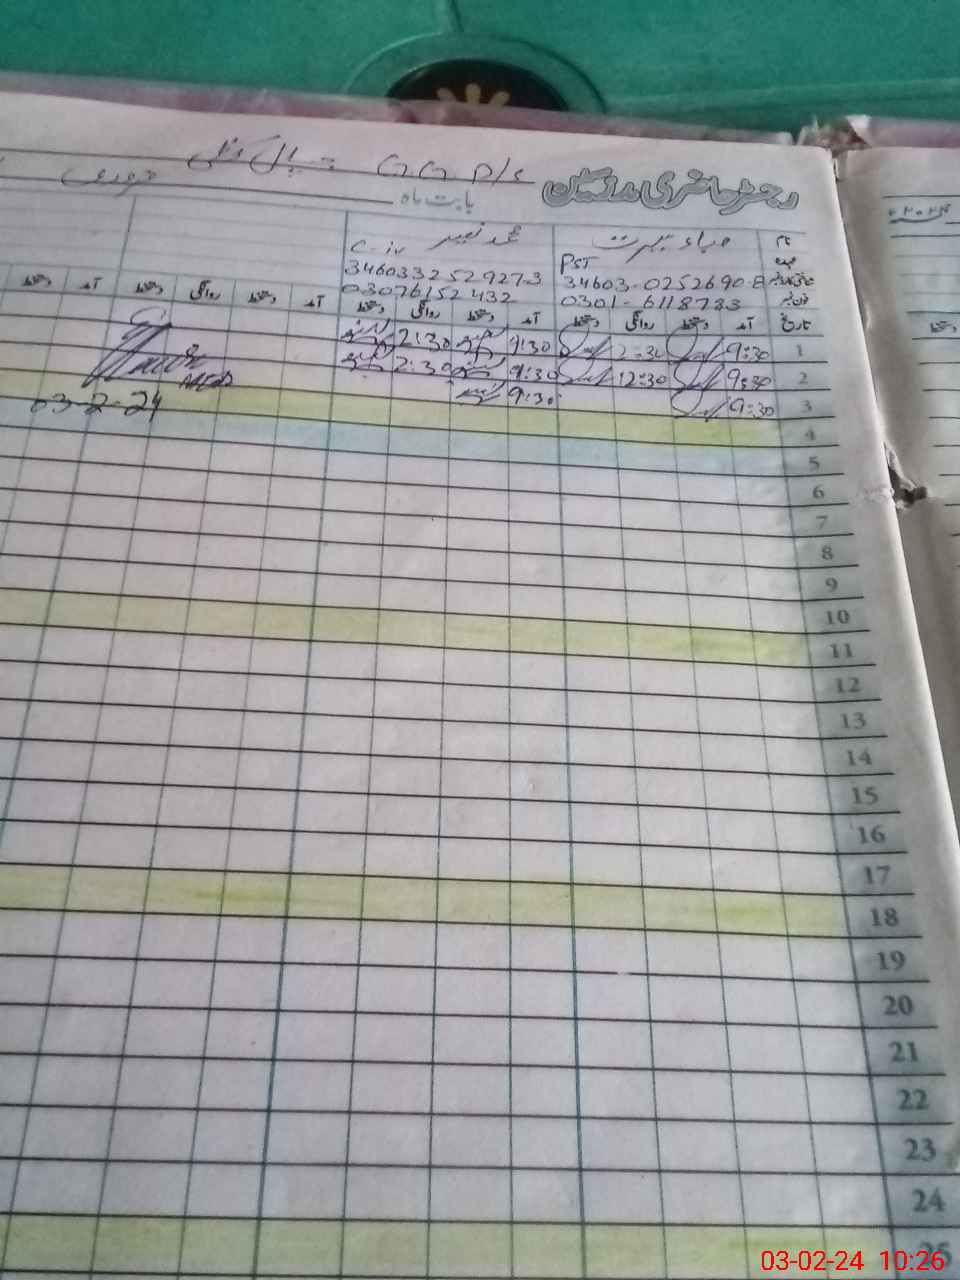 رجسٹر حاضری مدرسین G.G.P/S
بابت ماہ فروری
نام محمد نعیم
عہدہ PST C-iv
شناختی کارڈ نمبر 34603-0252690-8 3460332529273
فون نمبر 0301-6118783 03076152432
تاریخ آمد دستخط روانگی دستخط آمد دستخط روانگی دستخط آمد دستخط روانگی دستخط آمد دستخط
1 9:30 2:30 9:30 2:30
2 9:30 12:30 9:30 2:30
3 9:30 9:30
AEO
03-2-24
4
5
6
7
8
9
10
11
12
13
14
15
16
17
18
19
20
21
22
23
24
25
دستخط
03-02-24 10:26